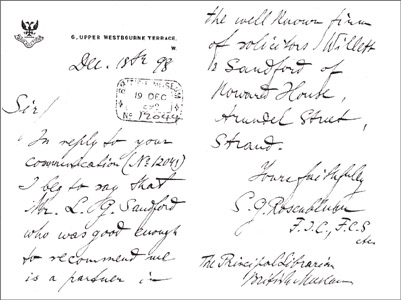 6, UPPER WESTBOURNE TERRACE,
W.
Dec. 18th 98
BRITISH MUSEUM
19 DEC
No
Sir/
In reply to your
communication (No 12045)
I beg to say that
Mr. L. G. Sandford
who was good enough
to recommend me
is a partner in
the well known firm
of solicitors Willett
& Sandford of
Howard House,
Arundel Street,
Strand.
Yours faithfully
S. G. Rosenblum
F.I.C., F.C.S
etc.
The Principal Librarian
British Museum